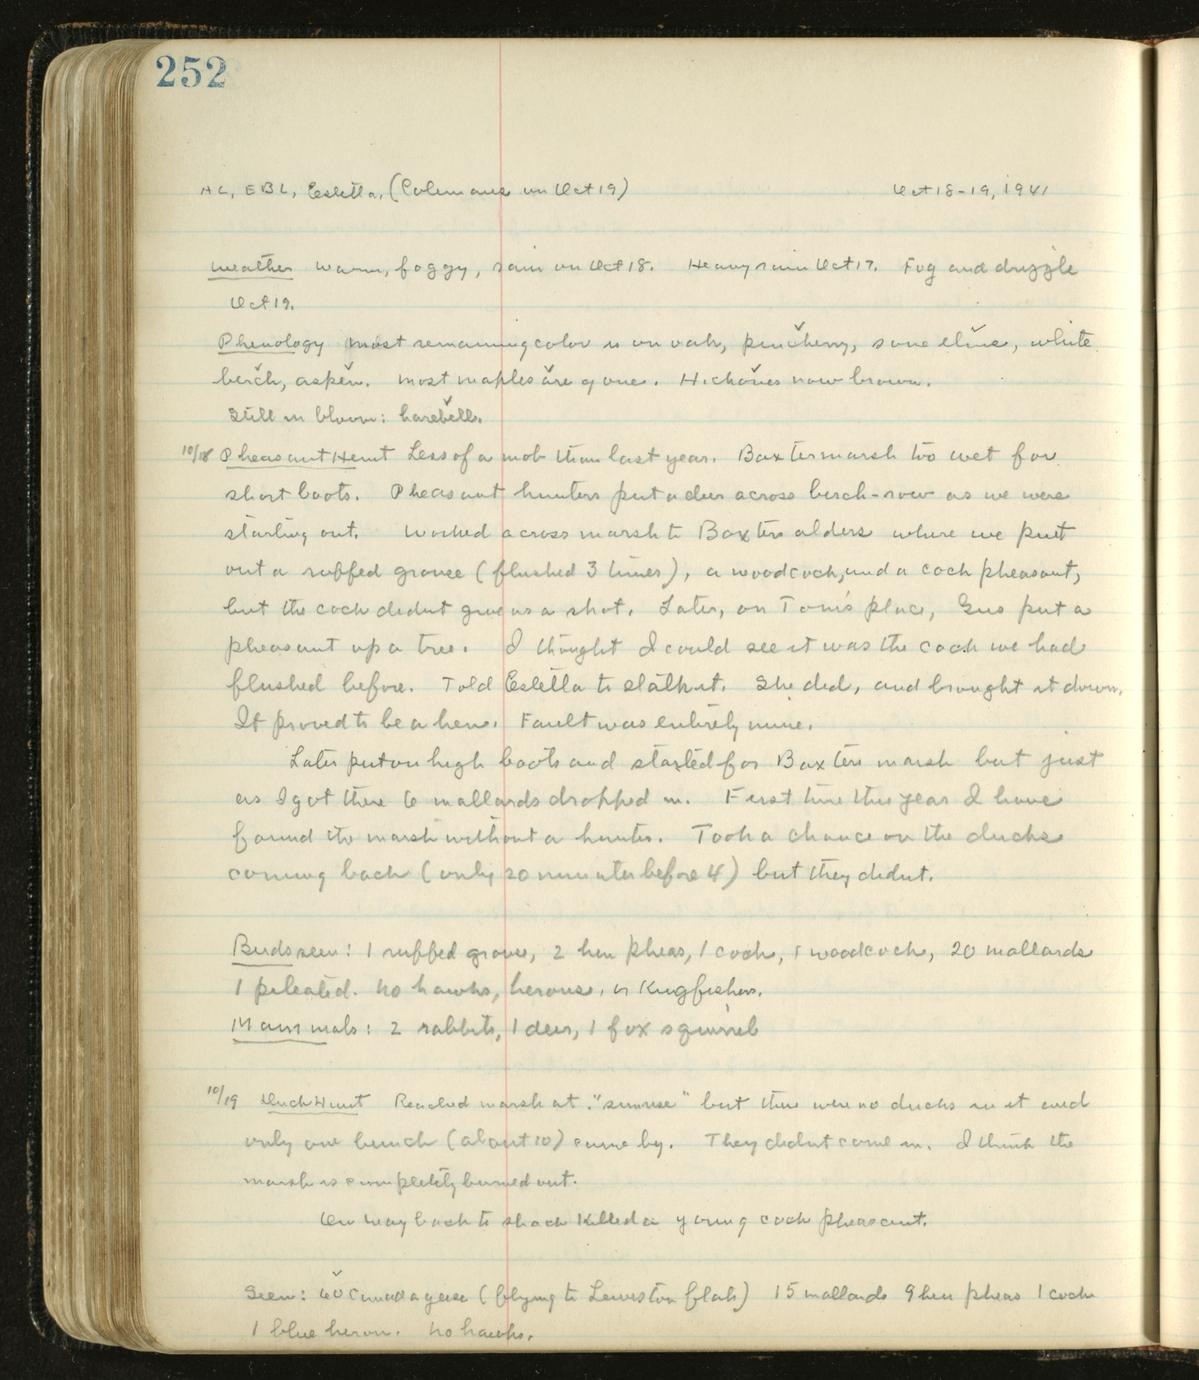 252
AL, EBL, Estella, (Colemans on Oct 19) Oct 18-19, 1941
Weather Warm, foggy, rain on Oct 18. Heavy rain Oct 17. Fog and drizzle
Oct 19.
Phenology Most remaining color is on oak, pincherry, some elms, white
birch, aspen. Most maples are gone. Hickories now brown.
Still in bloom: harebell.
10/18 Pheasant Hunt Less of a mob than last year. Baxter marsh too wet for
short boots. Pheasant hunters put a deer across birch-row as we were
starting out. Worked across marsh to Baxters alders where we put
out a ruffed grouse (flushed 3 times), a woodcock, and a cock pheasant,
but the cock didnt give us a shot. Later, on Tom's place, Gus put a
pheasant up a tree. I thought I could see it was the cock we had
flushed before. Told Estella to stalk it. She did, and brought it down.
It proved to be a hen. Fault was entirely mine.
Later put on high boots and started for Baxters marsh but just
as I got there 6 mallards dropped in. First time this year I have
found the marsh without a hunter. Took a chance on the ducks
coming back (only 20 minutes before 4) but they didnt.
Birds seen: 1 ruffed grouse, 2 hen pheas, 1 cock, 1 woodcock, 20 mallards
1 pileated. No hawks, herons, or Kingfishers.
Mammals: 2 rabbits, 1 deer, 1 fox squirrel
10/19 Duck Hunt Reached marsh at "sunrise" but there were no ducks in it and
only one bunch (about 10) came by. They didnt come in. I think the
marsh is completely burned out.
On way back to shack killed a young cock pheasant.
Seen: 60 Canada geese (flying to Lewiston flats) 15 mallards 9 hen pheas 1 cock
1 blue heron. No hawks.